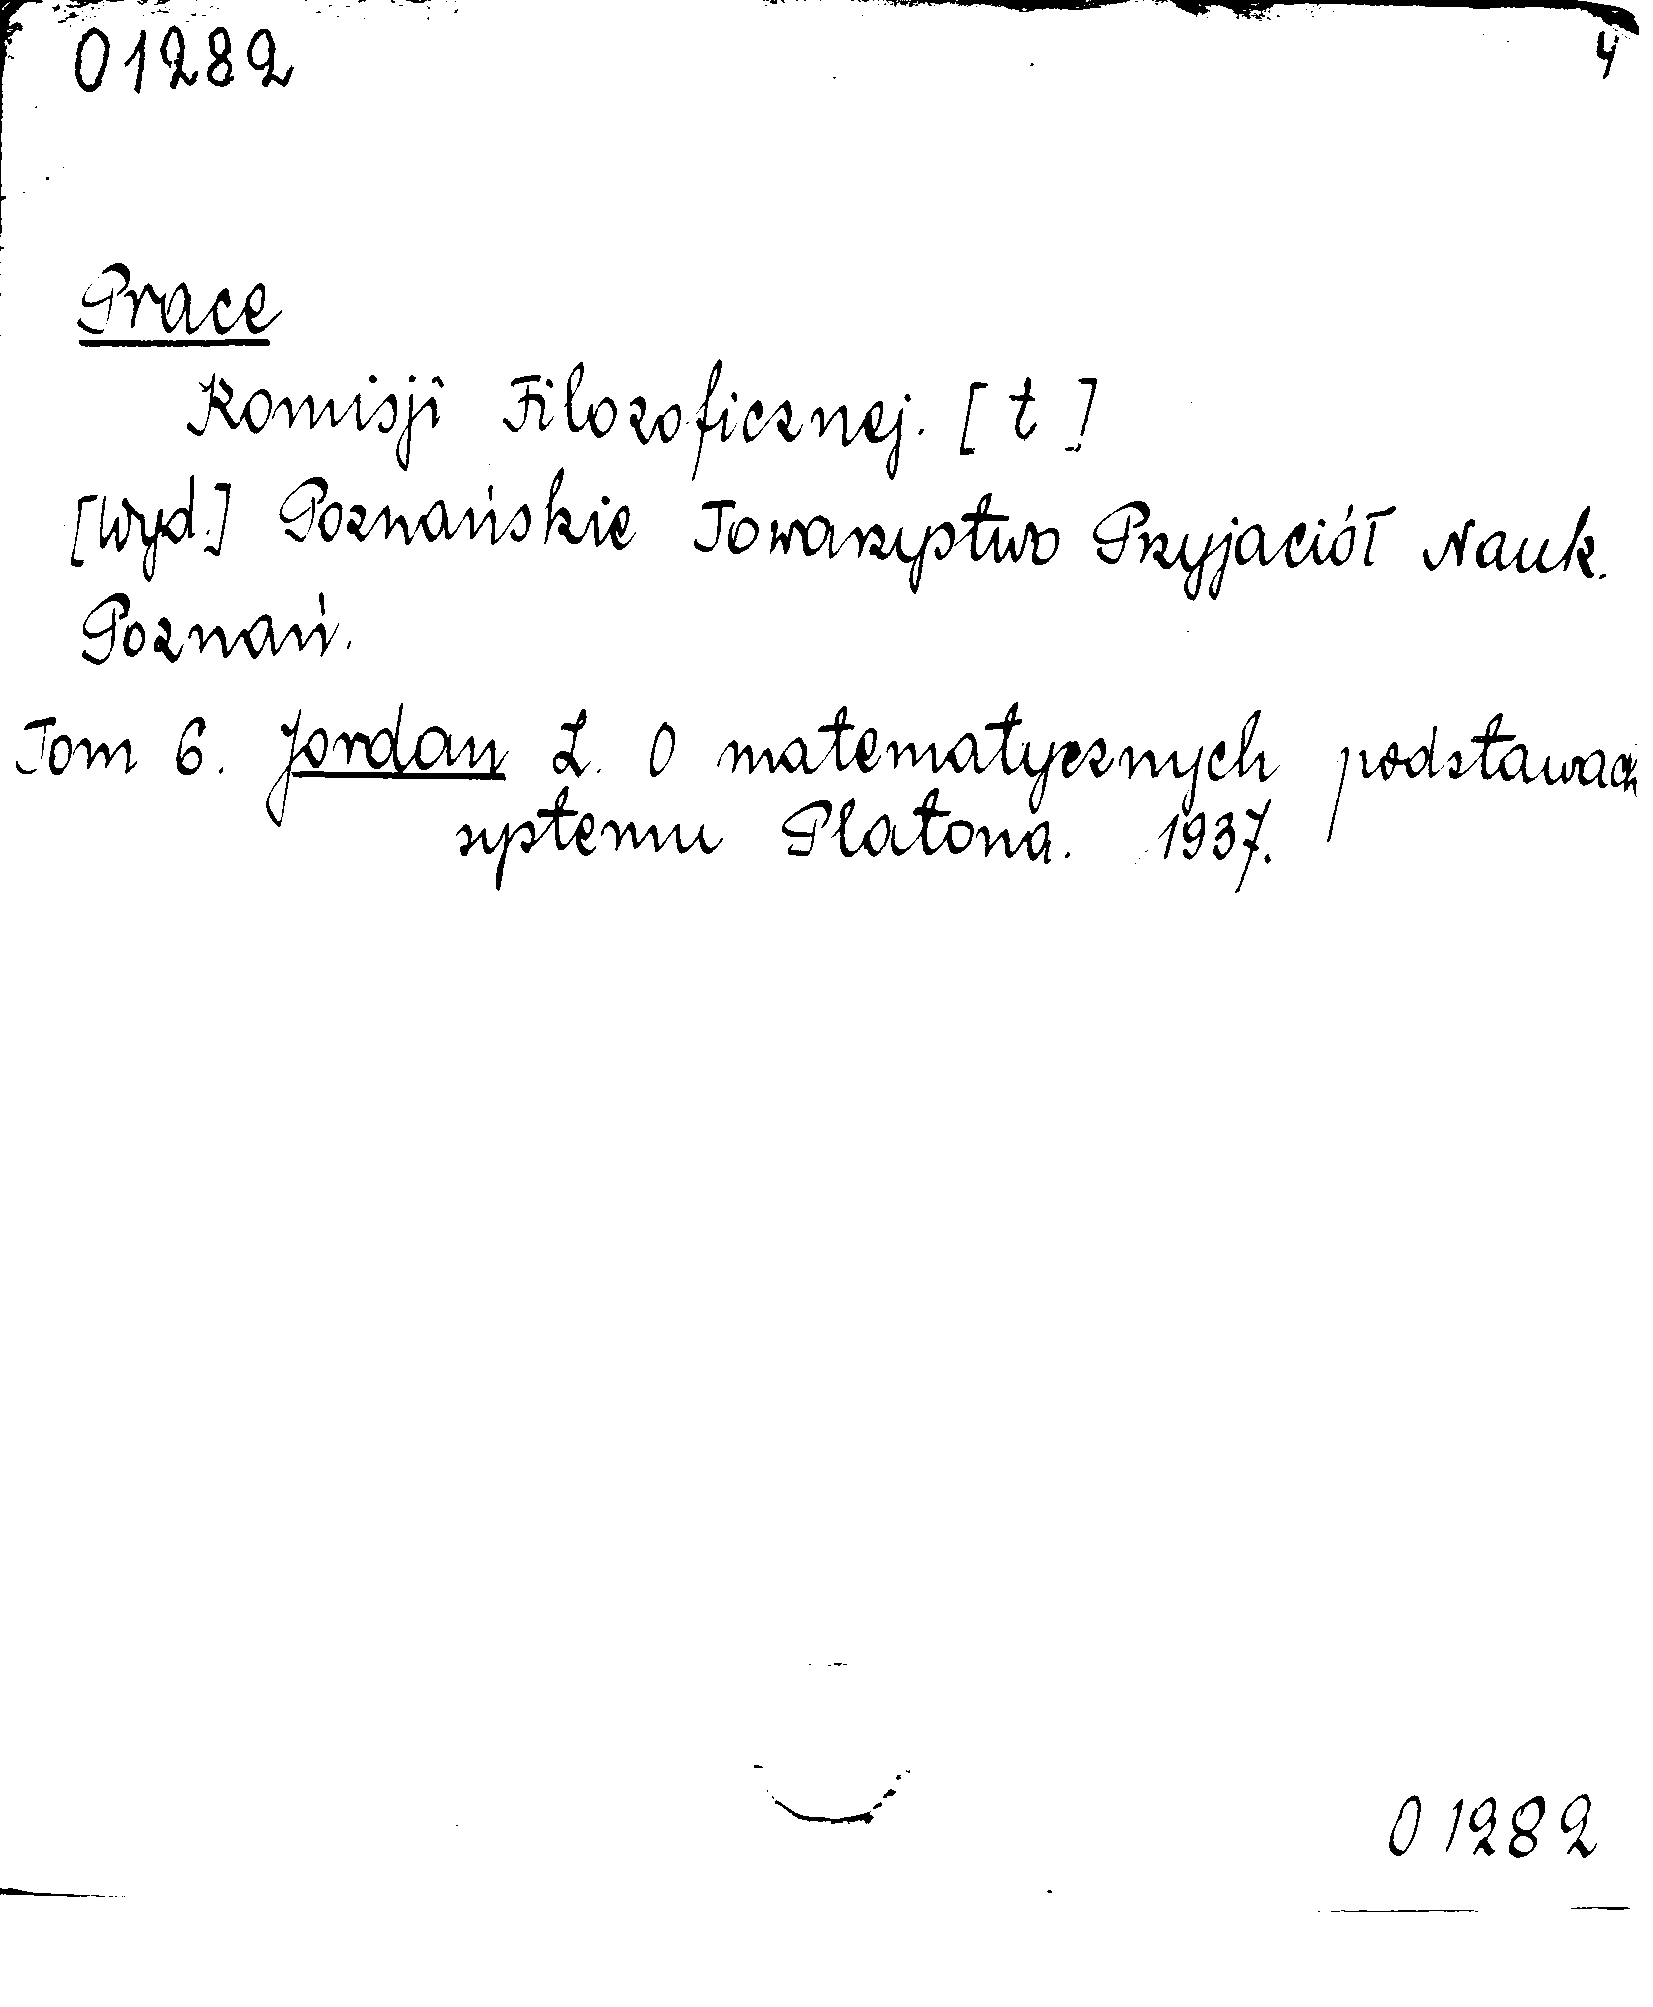 01282 4
Prace
Komisji Filozoficznej. [t]
[Wyd.] Poznańskie Towarzystwo Przyjaciół Nauk.
Poznań.
Tom 6. Jordan Z. O matematycznych podstawach
systemu Platona. 1937.
01282